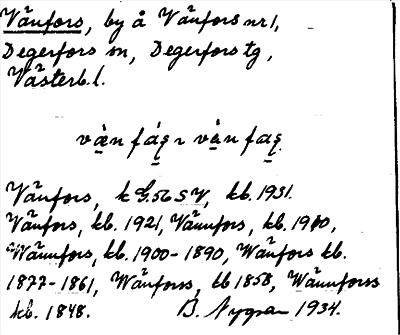 Vänfors, by å Vänfors nr 1,
Degerfors sn, Degerfors tg,
Västerb. l.
Vänfors, k G. 56 SV, kb. 1931.
Vänfors, kb. 1921, Vännfors, kb. 1910,
Wännfors, kb. 1900-1890, Wänfors kb.
1877-1861, Wänforss, kb 1858, Wännforss
kb. 1848. B. Nygren 1934.